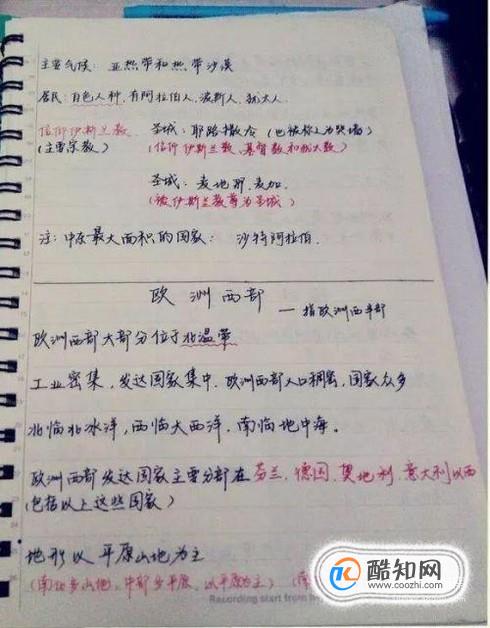 主要气候：亚热带和热带沙漠
居民：白色人种，有阿拉伯人、波斯人、犹太人
信仰伊斯兰教 圣城：耶路撒冷（也被称为哭墙）
（主要宗教）（信仰伊斯兰教、基督教和犹太教）
圣城：麦地那、麦加
（被伊斯兰教尊为圣城）
注：中东最大面积的国家：沙特阿拉伯.
欧洲西部 — 指欧洲西半部
欧洲西部大部分位于北温带
工业密集，发达国家集中，欧洲西部人口稠密，国家众多
北临北冰洋，西临大西洋，南临地中海。
欧洲西部发达国家主要分部在芬兰、德国、奥地利、意大利以西
（包括以上这些国家）
地形以平原山地为主
（南北多山地，中部多平原，以平原为主）（
Recording start from
酷知网
www.coozhi.com